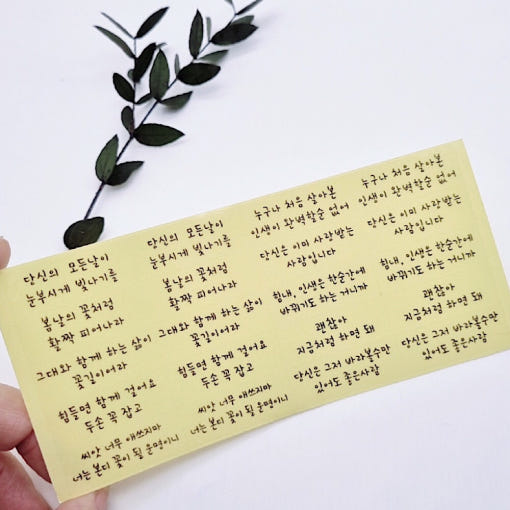 당신의 모든날이
눈부시게 빛나기를
봄날의 꽃처럼
활짝 피어나라
그대와 함께 하는 삶이
꽃길이어라
힘들면 함께 걸어요
두손 꼭 잡고
씨앗 너무 애쓰지마
너는 본디 꽃이 될 운명이니
당신의 모든날이
눈부시게 빛나기를
봄날의 꽃처럼
활짝 피어나라
그대와 함께 하는 삶이
꽃길이어라
힘들면 함께 걸어요
두손 꼭 잡고
씨앗 너무 애쓰지마
너는 본디 꽃이 될 운명이니
누구나 처음 살아본
인생이 완벽할순 없어
당신은 이미 사랑받는
사람입니다
힘내, 인생은 한순간에
바뀌기도 하는 거니까
괜찮아
지금처럼 하면 돼
당신은 그저 바라볼수만
있어도 좋은사람
누구나 처음 살아본
인생이 완벽할순 없어
당신은 이미 사랑받는
사람입니다
힘내, 인생은 한순간에
바뀌기도 하는 거니까
괜찮아
지금처럼 하면 돼
당신은 그저 바라볼수만
있어도 좋은사람